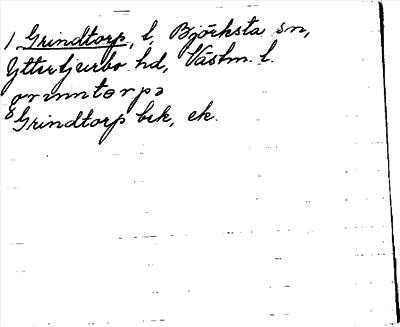 1 Grindtorp, l, Björksta sn,
Yttertjurbo hd, Västm. l.
grinntorpə
Grindtorp bek, ek.